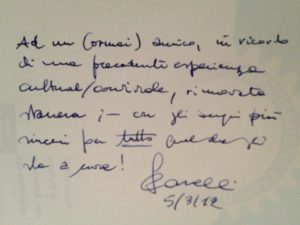 Ad un (ormai) amico, in ricordo
di una precedente esperienza
cultural/conviviale, rinnovata
stasera; - con gli auguri più
sinceri per tutto quel che gli
sta a cuore!
5/3/12